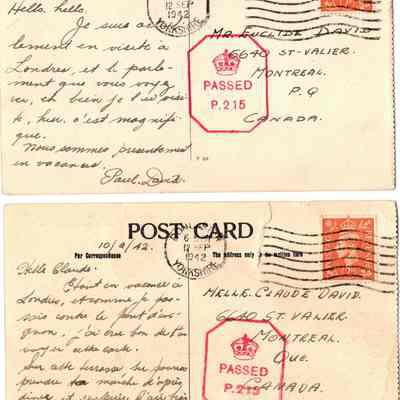 Hello, hello.
Je suis actuel-
lement en visite à
Londres, et le parle-
ment que vous voyez
ici, eh bien je l'ai visi-
té, hier, c'est magnifi-
que.
Nous sommes présentement
en vacances.
Paul David.
12 SEP
1942
YORKSHIRE
PASSED
P.215
MR EUCLIDE DAVID
6640 ST-VALIER
MONTREAL
P.Q
CANADA.
POST CARD
For Correspondence
The address only to be written here
10/9/42.
12 SEP
1942
YORKSHIRE
Hello Claude.
Étant en vacances à
Londres, et comme je pas-
sais contre le pont
j'ai cru bon de t'en-
voyer cette carte.
Sur cette terrasse, les
prendre marche d'après
dîner et
MELLE. CLAUDE DAVID.
6640 ST. VALIER
MONTREAL
Que.
CANADA.
PASSED
P.215